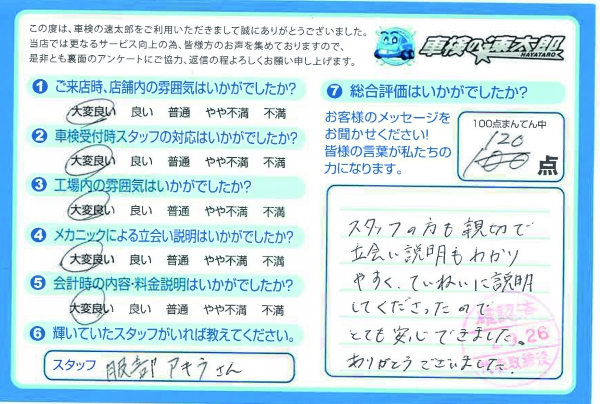 この度は、車検の速太郎をご利用いただきまして誠にありがとうございました。
当店では更なるサービス向上の為、皆様方のお声を集めておりますので、
是非とも裏面のアンケートにご協力、返信の程よろしくお願い申し上げます。
車検の速太郎
HAYATARO
1 ご来店時、店舗内の雰囲気はいかがでしたか?
大変良い 良い 普通 やや不満 不満
2 車検受付時スタッフの対応はいかがでしたか?
大変良い 良い 普通 やや不満 不満
3 工場内の雰囲気はいかがでしたか?
大変良い 良い 普通 やや不満 不満
4 メカニックによる立会い説明はいかがでしたか?
大変良い 良い 普通 やや不満 不満
5 会計時の内容・料金説明はいかがでしたか?
大変良い 良い 普通 やや不満 不満
6 輝いていたスタッフがいれば教えてください。
スタッフ 服部 アキラさん
7 総合評価はいかがでしたか?
お客様のメッセージを
お聞かせください!
皆様の言葉が私たちの
力になります。
100点まんてん中
120
100 点
スタッフの方も親切で
立会い説明もわかり
やすく、ていねいに説明
してくださったので
とても安心できました。
ありがとうございました。
確認済
.26
取締役